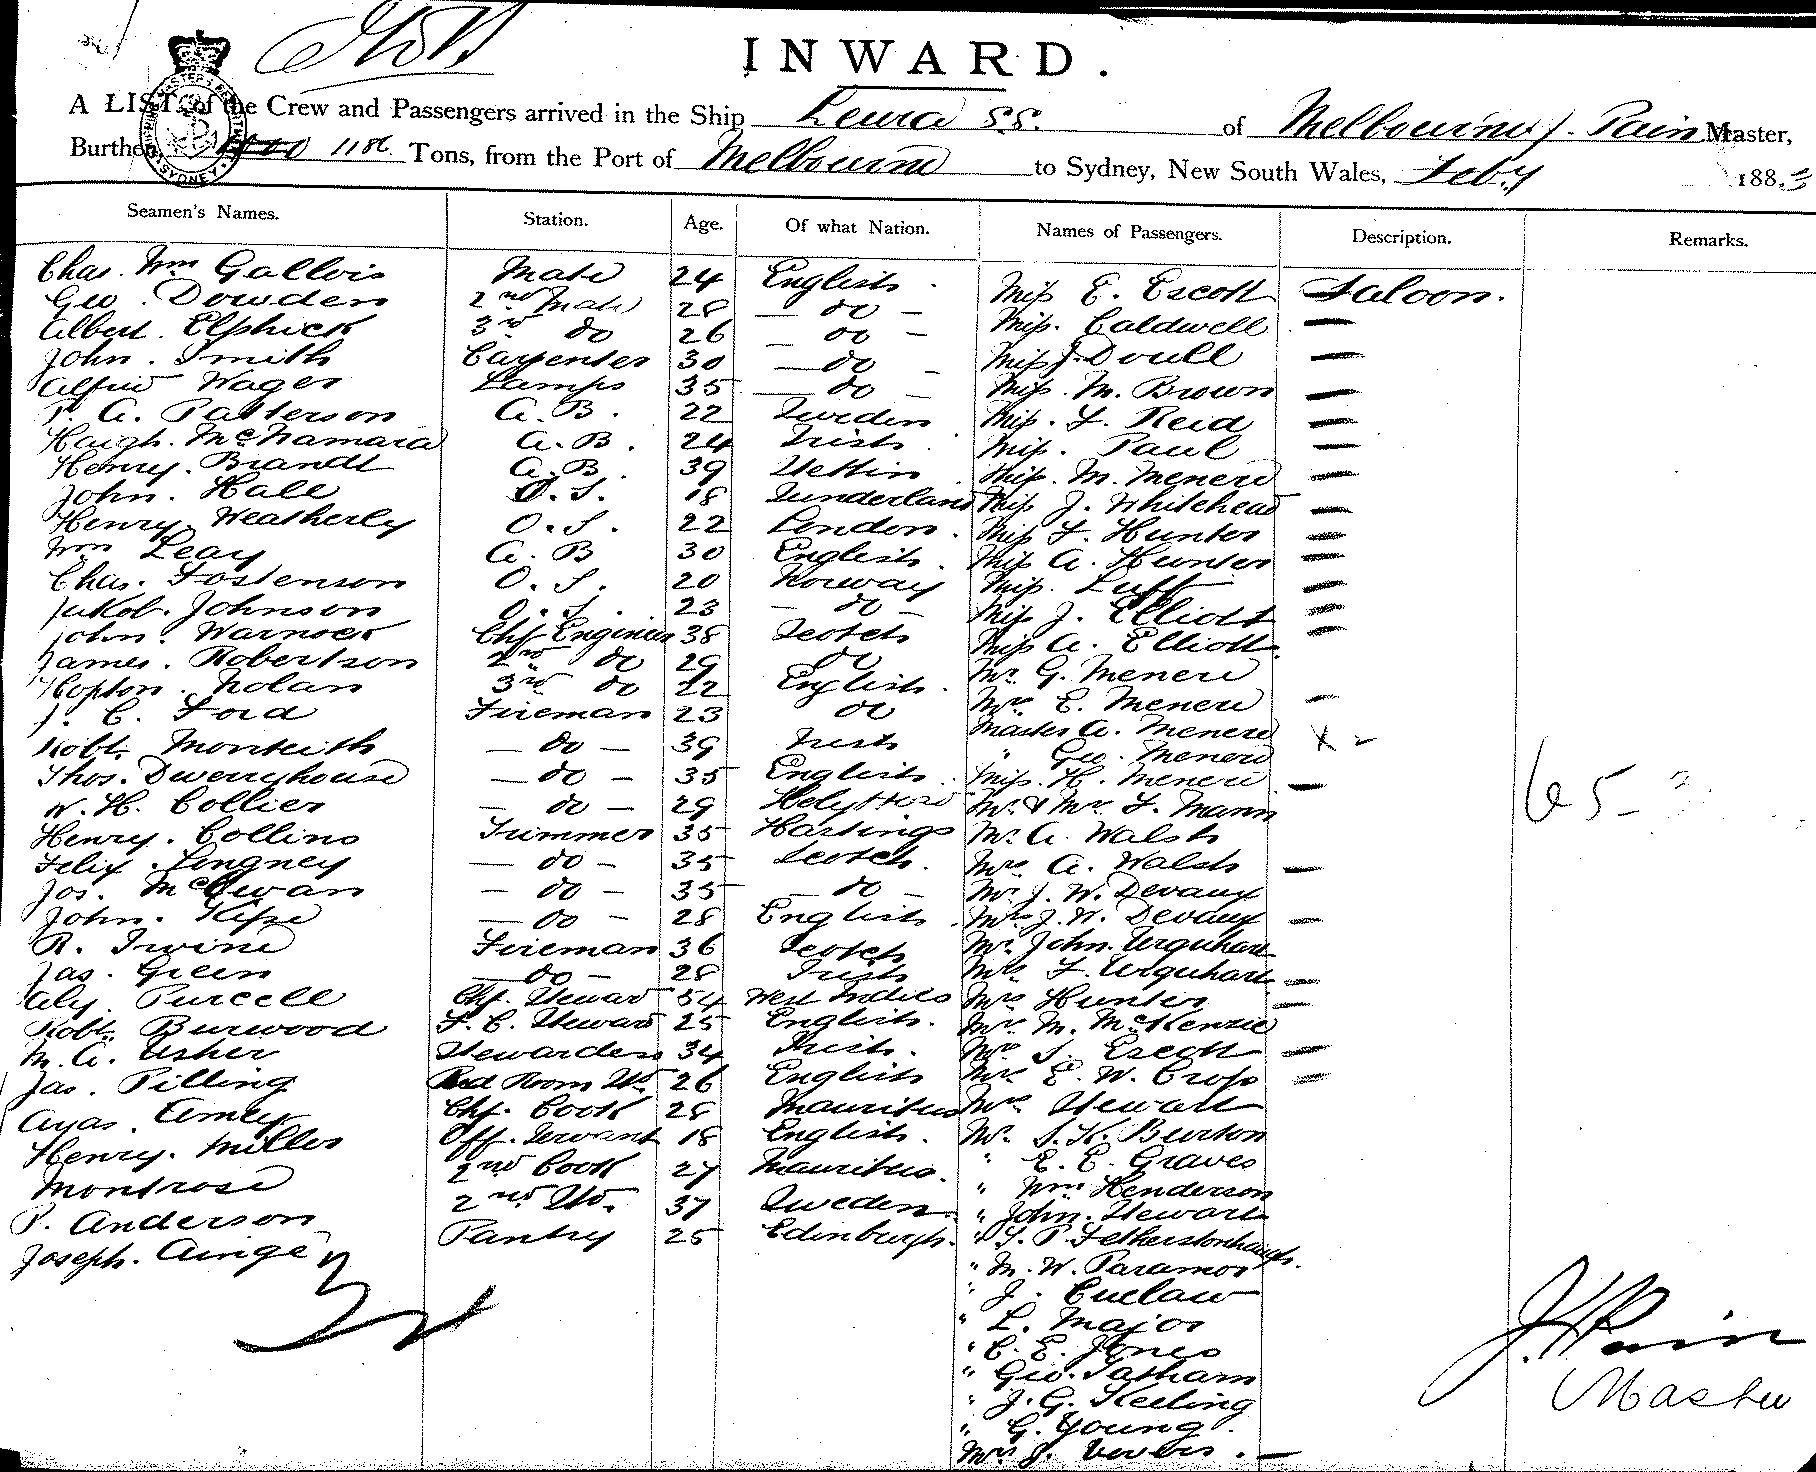 INWARD.
A LIST of the Crew and Passengers arrived in the Ship Leura SS. of Melbourne, J. Pain Master,
Burthen 1186 Tons, from the Port of Melbourne to Sydney, New South Wales, Feby 1883
Seamen's Names. Station. Age. Of what Nation. Names of Passengers. Description. Remarks.
Chas. Wm Gallois Mate 24 English Miss E. Escott Saloon.
Geo. Dowden 2nd Mate 28 — do — Miss. Caldwell —
Albert. Elphick 3rd do 26 — do — Miss J. Doull —
John. Smith Carpenter 30 — do — Miss. M. Brown —
Alfred Wager Lamps 35 — do — Miss. L. Reid —
P. A. Patterson A. B. 22 Sweden Miss. Paul —
Hough. McNamara A. B. 24 Irish Miss. M. Menere —
Henry. Brandt A. B. 39 Stettin Miss J. Whitehead —
John. Hall O. S. 18 Sunderland Miss L. Hunter —
Henry Weatherly O. S. 22 London. Miss A. Hunter —
Wm Leay A. B 30 English. Miss. Luff —
Chas. Tostenson O. S. 20 Norway Miss J. Elliott —
Jakob. Johnson O. S. 23 — do — Miss A. Elliott —
John. Warnock Chf Engineer 38 Scotch Mr G. Menere
James. Robertson 2nd do 29 do Mrs E. Menere —
Hopton. Nolan 3rd do 22 English. Master A. Menere
J. C. Ford Fireman 23 do " Geo. Menere X -
Robt. Monteith — do — 39 Irish Miss. H. Menere —
Thos. Dwerryhouse — do — 35 English. Mr & Mrs F. Mann 65
W. H. Collier — do — 29 Mr. A. Walsh
Henry. Collins Trimmer 35 Hastings Mrs A. Walsh —
Felix. Lingney — do — 35 Scotch. Mr. J. W. Devaux
Jos. McEwan — do — 35 — do — Mrs J. W. Devaux —
John. — do — 28 English Mr. John. Urquhart
R. Irvine Fireman 36 Scotch Mrs F. Urquhart —
Jas. Green — do — 28 Irish Mrs Hunter —
Aly. Purcell Chf. Steward 54 West Indies Mrs M. McKenzie
Robt. Burwood F. C. Steward 25 English. Mrs S. Escott —
M. A. Usher Stewardess 34 Irish. Mrs E. W. Cross —
Jas. Pilling Bed Room Std. 26 English Mrs Stewart
Ayas. Amey Chf. Cook 28 Mauritius Mr. S. K. Burton
Henry. Miller Off. Servant 18 English. " E. E. Graves
Montrose 2nd Cook 27 Mauritius. " Wm Henderson
P. Anderson 2nd Std. 37 Sweden " John. Stewart
Joseph. Ainge Pantry 25 Edinburgh. " S. P. Fetherstonhaugh.
" M. W. Paramor
" J. Cuelaw
" L. Major
" C. E. Jones
" Geo. Tatham
" J. G. Keeling
" G. Young.
Mrs J. —
J. Pain
Master